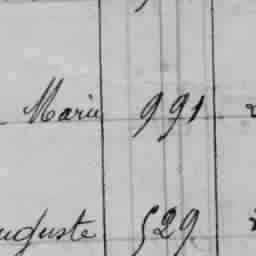 Marie 991
uguste 529